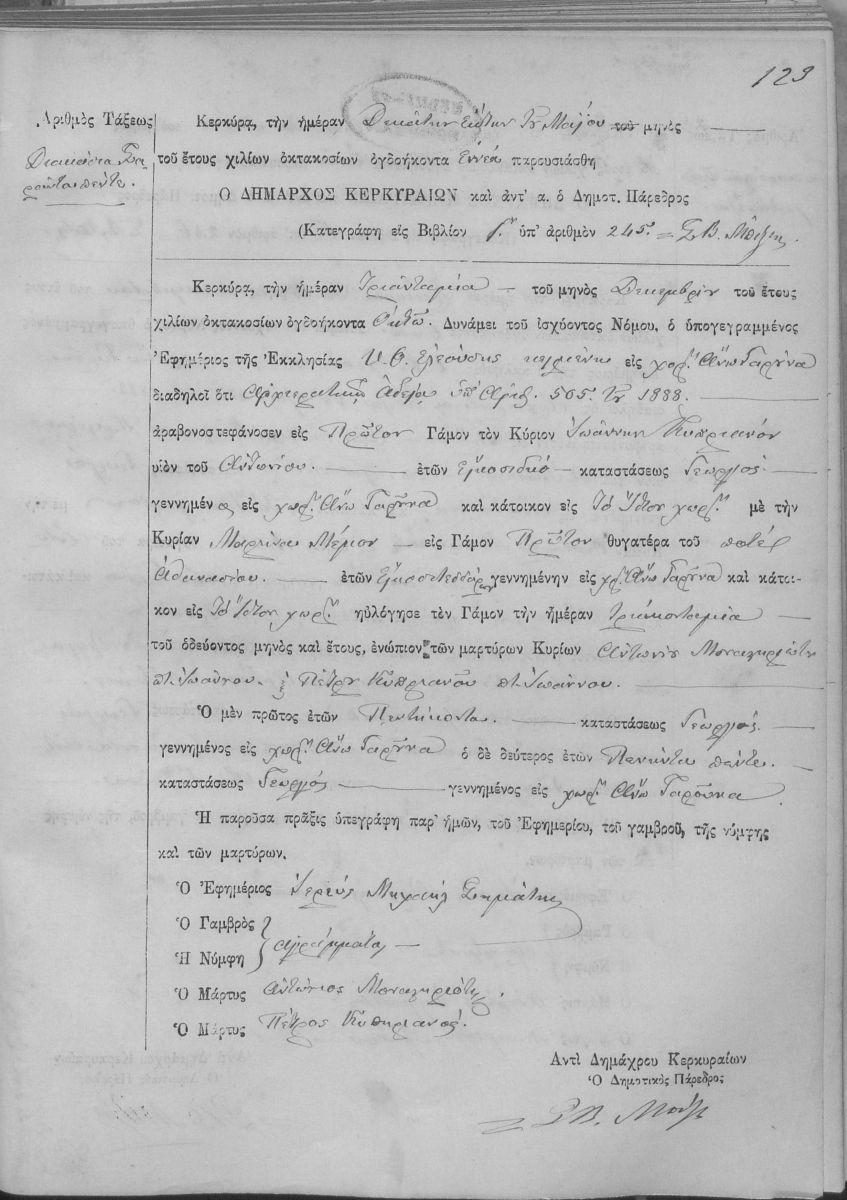 129
Ἀριθμὸς Τάξεως
Διακόσια Σα-
ράντα πέντε.
Κερκύρᾳ, τὴν ἡμέραν Δεκάτην Ἕκτην Μαΐου τοῦ μηνὸς
τοῦ ἔτους χιλίων ὀκτακοσίων ὀγδοήκοντα Ἐννέα παρουσιάσθη
Ὁ ΔΗΜΑΡΧΟΣ ΚΕΡΚΥΡΑΙΩΝ καὶ ἀντ' α. ὁ Δημοτ. Πάρεδρος
(Κατεγράφη εἰς Βιβλίον ὑπ' ἀριθμὸν 245.
Κερκύρᾳ, τὴν ἡμέραν Τριάντα μία τοῦ μηνὸς Δεκεμβρίου τοῦ ἔτους
χιλίων ὀκτακοσίων ὀγδοήκοντα Ὀκτώ. Δυνάμει τοῦ ἰσχύοντος Νόμου, ὁ ὑπογεγραμμένος
Ἐφημέριος τῆς Ἐκκλησίας Υ. Θ. Ἐλεούσης κειμένη εἰς χωρ. Ἄνω Γαρούνα
διαδηλοῖ ὅτι Ἀρχιερατικῇ Ἀδείᾳ ὑπ' Ἀριθ. 505. 1888.
ἀραβονοστεφάνοσεν εἰς Πρῶτον Γάμον τὸν Κύριον Ἰωάννην Κυπριανόν
υἱὸν τοῦ Ἀντωνίου. ἐτῶν Εἴκοσι δύο καταστάσεως Γεωργός.
γεννημένο εἰς χωρ. Ἄνω Γαρούνα καὶ κάτοικον εἰς Τὸ Ἴδιον χωρ. μὲ τὴν
Κυρίαν Μαρίναν εἰς Γάμον Πρῶτον θυγατέρα τοῦ ποτέ
Ἀθανασίου. ἐτῶν Εἴκοσι τεσσάρων γεννημένην εἰς χωρ. Ἄνω Γαρούνα καὶ κάτοι-
κον εἰς Τὸ Ἴδιον χωρ. ηὐλόγησε τὸν Γάμον τὴν ἡμέραν Τριάκοντα μία
τοῦ ὁδεύοντος μηνὸς καὶ ἔτους, ἐνώπιον τῶν μαρτύρων Κυρίων Ἀντωνίου Μοναχηριώτη
π. Ἰωάννου. Πέτρου Κυπριανοῦ π. Ἰωάννου.
Ὁ μὲν πρῶτος ἐτῶν Πενήκοντα. καταστάσεως Γεωργός.
γεννημένος εἰς χωρ. Ἄνω Γαρούνα ὁ δὲ δεύτερος ἐτῶν Πενήντα πέντε.
καταστάσεως Γεωργός γεννημένος εἰς χωρ. Ἄνω Γαρούνα
Ἡ παροῦσα πρᾶξις ὑπεγράφη παρ' ἡμῶν, τοῦ Ἐφημερίου, τοῦ γαμβροῦ, τῆς νύμφης
καὶ τῶν μαρτύρων.
Ὁ Ἐφημέριος Ἱερεὺς Μιχαὴλ
Ὁ Γαμβρὸς
Ἡ Νύμφη ἀγράμματοι
Ὁ Μάρτυς Ἀντώνιος Μοναχηριώτης
Ὁ Μάρτυς Πέτρος Κυπριανός.
Ἀντὶ Δημάχρου Κερκυραίων
Ὁ Δημοτικὸς Πάρεδρος